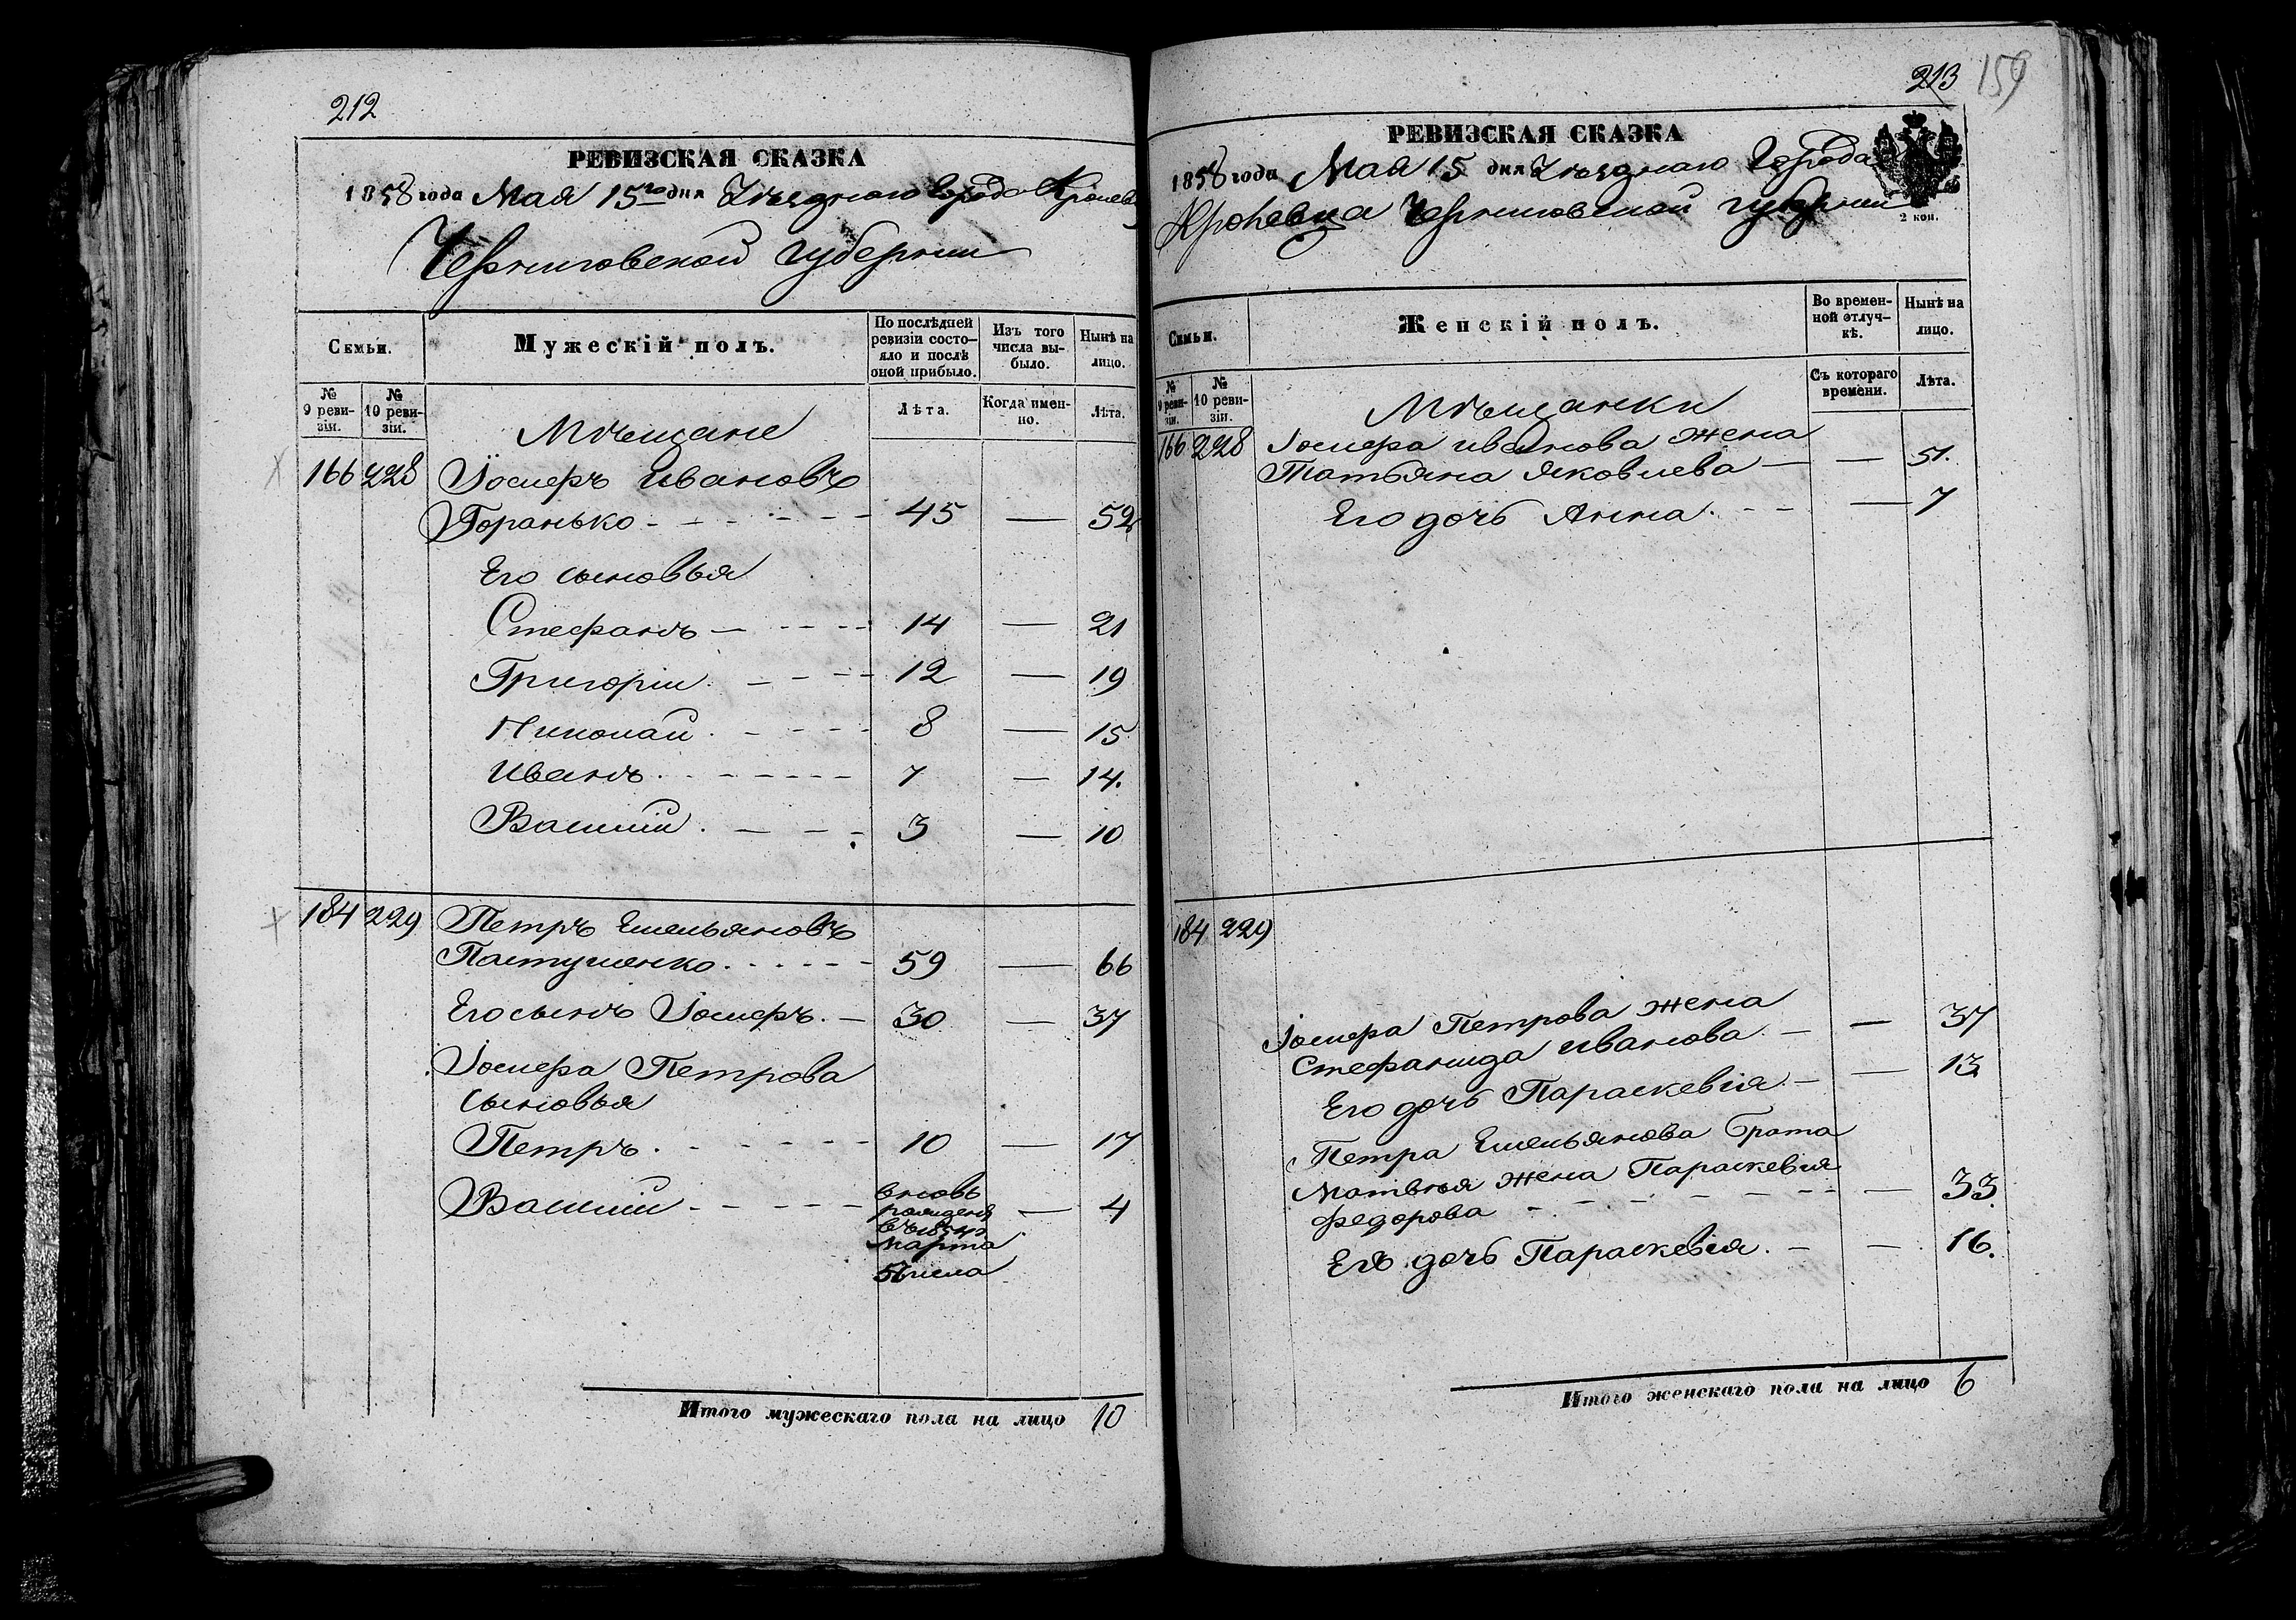 212
РЕВИЗСКАЯ СКАЗКА
1858 года Мая 15го дня Уѣзднаго Города Кролевца
Черниговской губернии
Семьи.
Мужескій полъ.
По послѣдней ревизіи состояло и послѣ оной прибыло.
Изъ того числа выбыло.
Нынѣ на лицо.
№ 9 ревизіи.
№ 10 ревизіи.
Лѣта.
Когда именно.
Лѣта.
Мѣщане
166 228 Іосифъ Ивановъ
Горанько 45 — 52
Его сыновья
Стефанъ 14 — 21
Григорій 12 — 19
Николай 8 — 15
Иванъ 7 — 14.
Василій 3 — 10
184 229 Петръ Емельяновъ
Пастушенко 59 — 66
Его сынъ Іосифъ 30 — 37
Іосифа Петрова
сыновья
Петръ 10 — 17
Василій вновь — 4
рожденъ
въ 1854 г.
Марта
5 числа
Итого мужескаго пола на лицо 10
213 159
РЕВИЗСКАЯ СКАЗКА
1858 года Мая 15 дня Уѣзднаго Города
Кролевца Черниговской губернии
2 коп.
Семьи.
Женскій полъ.
Во временной отлучкѣ.
Нынѣ на лицо.
№ 9 ревизіи.
№ 10 ревизіи.
Съ котораго времени.
Лѣта.
Мѣщанки
166 228 Іосифа Иванова жена
Татьяна Яковлева — 51.
Его дочь Анна — 7
184 229
Іосифа Петрова жена
Стефанида Иванова — 37
Его дочь Параскевія — 13
Петра Емельянова брата
Матвѣя жена Параскевія
Федорова — 33.
Его дочь Параскевія — 16.
Итого женскаго пола на лицо 6